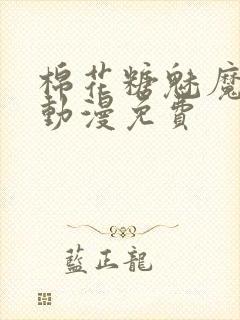 棉花糖魅魔
動漫免費
藍正龍